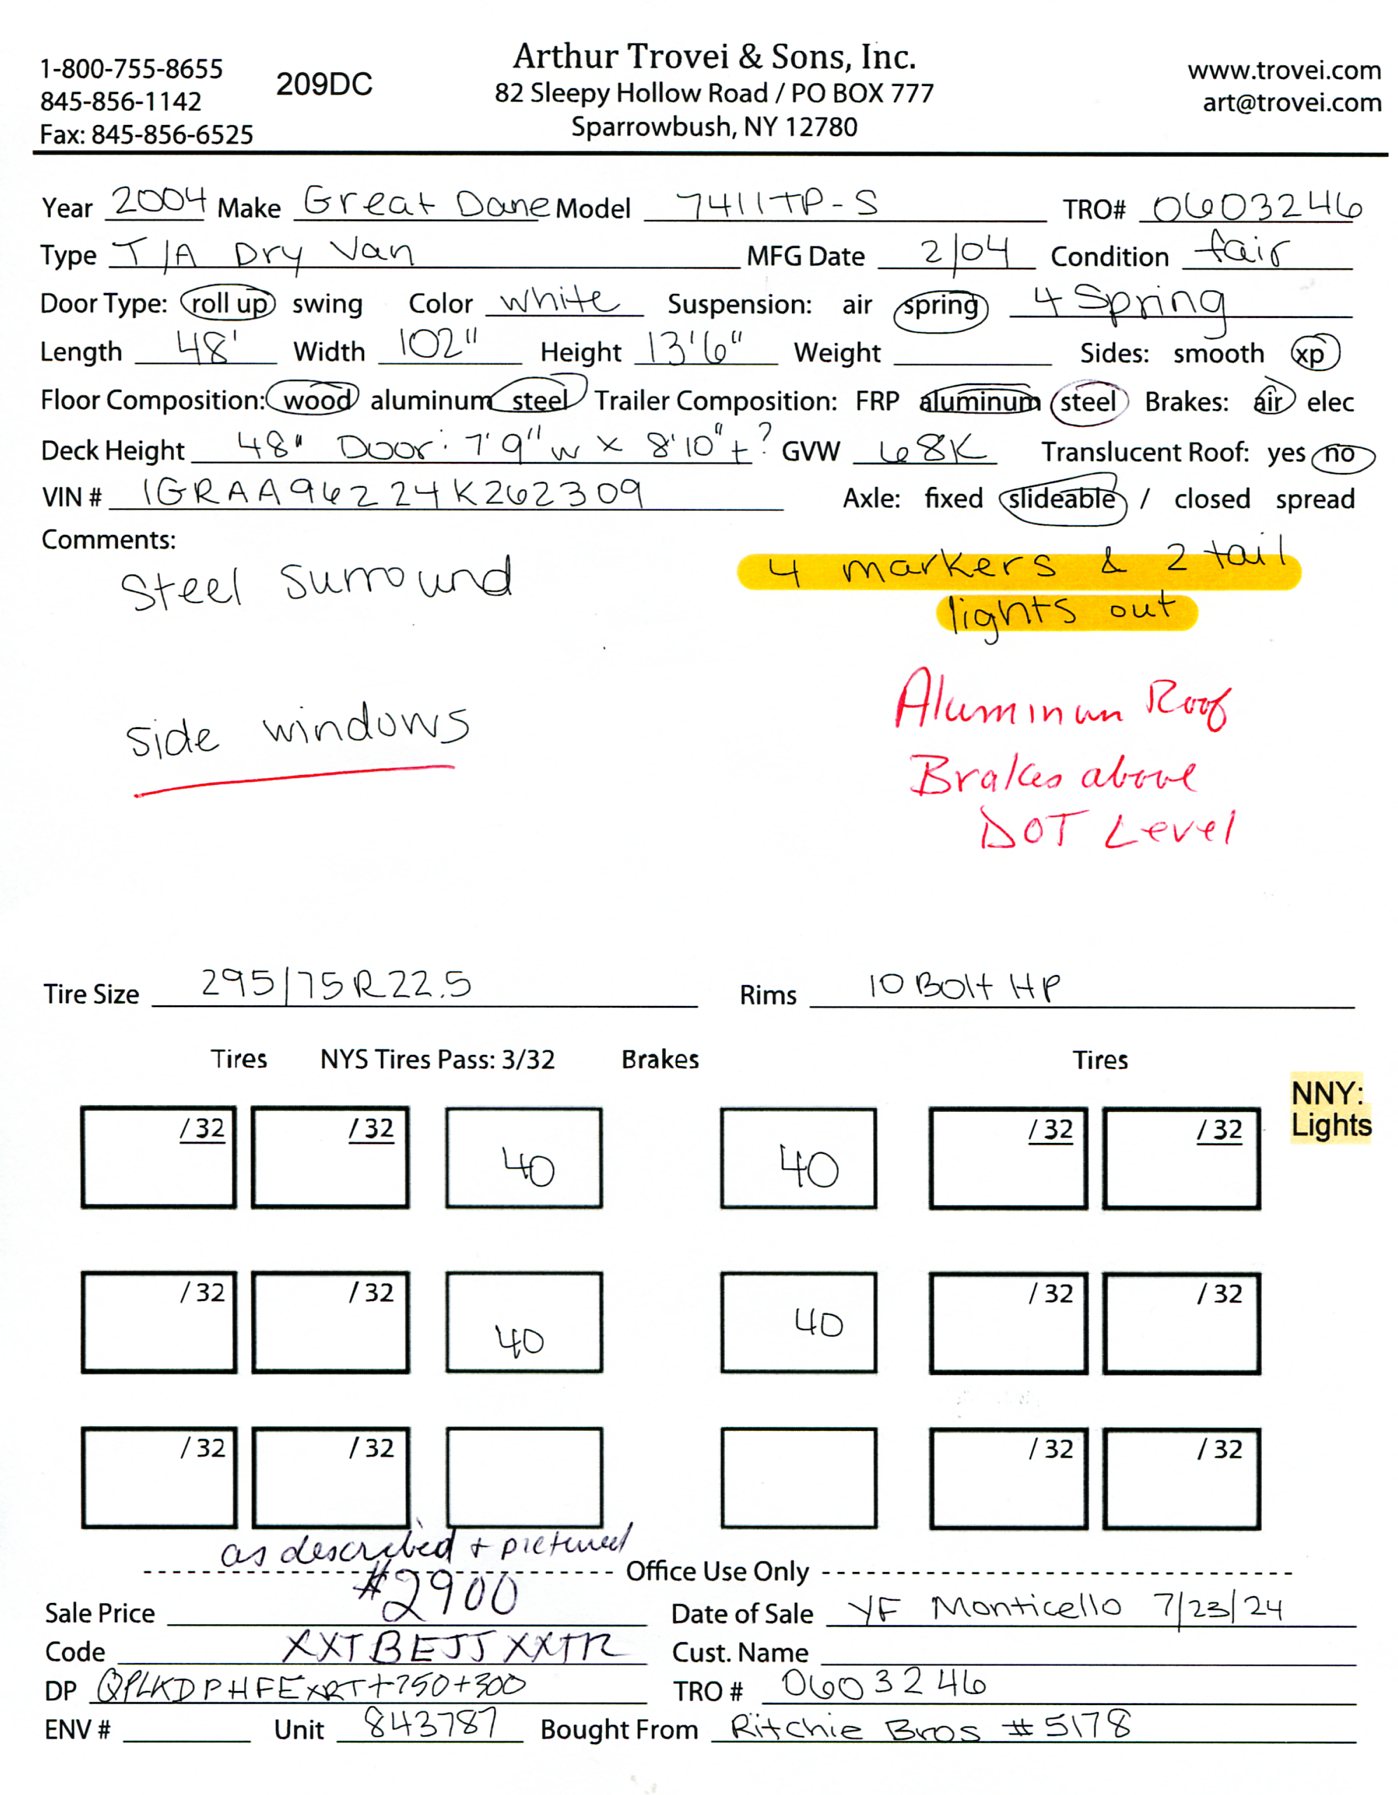 1-800-755-8655
845-856-1142
Fax: 845-856-6525
209DC
Arthur Trovei & Sons, Inc.
82 Sleepy Hollow Road / PO BOX 777
Sparrowbush, NY 12780
www.trovei.com
art@trovei.com
Year 2004 Make Great Dane Model 7411TP-S TRO# 0603246
Type T/A Dry Van MFG Date 2/04 Condition fair
Door Type: roll up swing Color white Suspension: air spring 4 Spring
Length 48' Width 102" Height 13'6" Weight Sides: smooth xp
Floor Composition: wood aluminum steel Trailer Composition: FRP aluminum steel Brakes: air elec
Deck Height 48" Door: 7'9"w x 8'10"t? GVW 68K Translucent Roof: yes no
VIN # 1GRAA96224K262309 Axle: fixed slideable / closed spread
Comments:
Steel Surround
4 markers & 2 tail
lights out
side windows
Aluminum Roof
Brakes above
DOT Level
Tire Size 295/75R22.5 Rims 10 Bolt HP
Tires NYS Tires Pass: 3/32 Brakes Tires
NNY:
Lights
/32 /32 40 40 /32 /32
/32 /32 40 40 /32 /32
/32 /32 /32 /32
as described + pictured
Office Use Only
Sale Price $2900 Date of Sale YF Monticello 7/23/24
Code XXTBEJJXXTR Cust. Name
DP QPLKDPHFEXRT+750+300 TRO # 0603246
ENV # Unit 843787 Bought From Ritchie Bros #5178